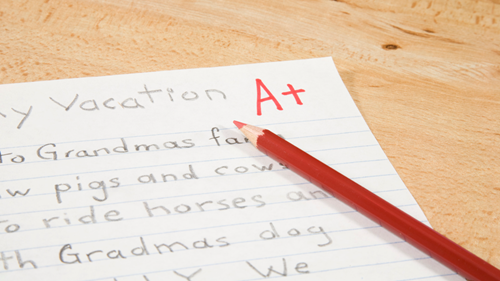 Vacation A+
to Grandmas
pigs and cows
to ride horses
Gradmas dog
We